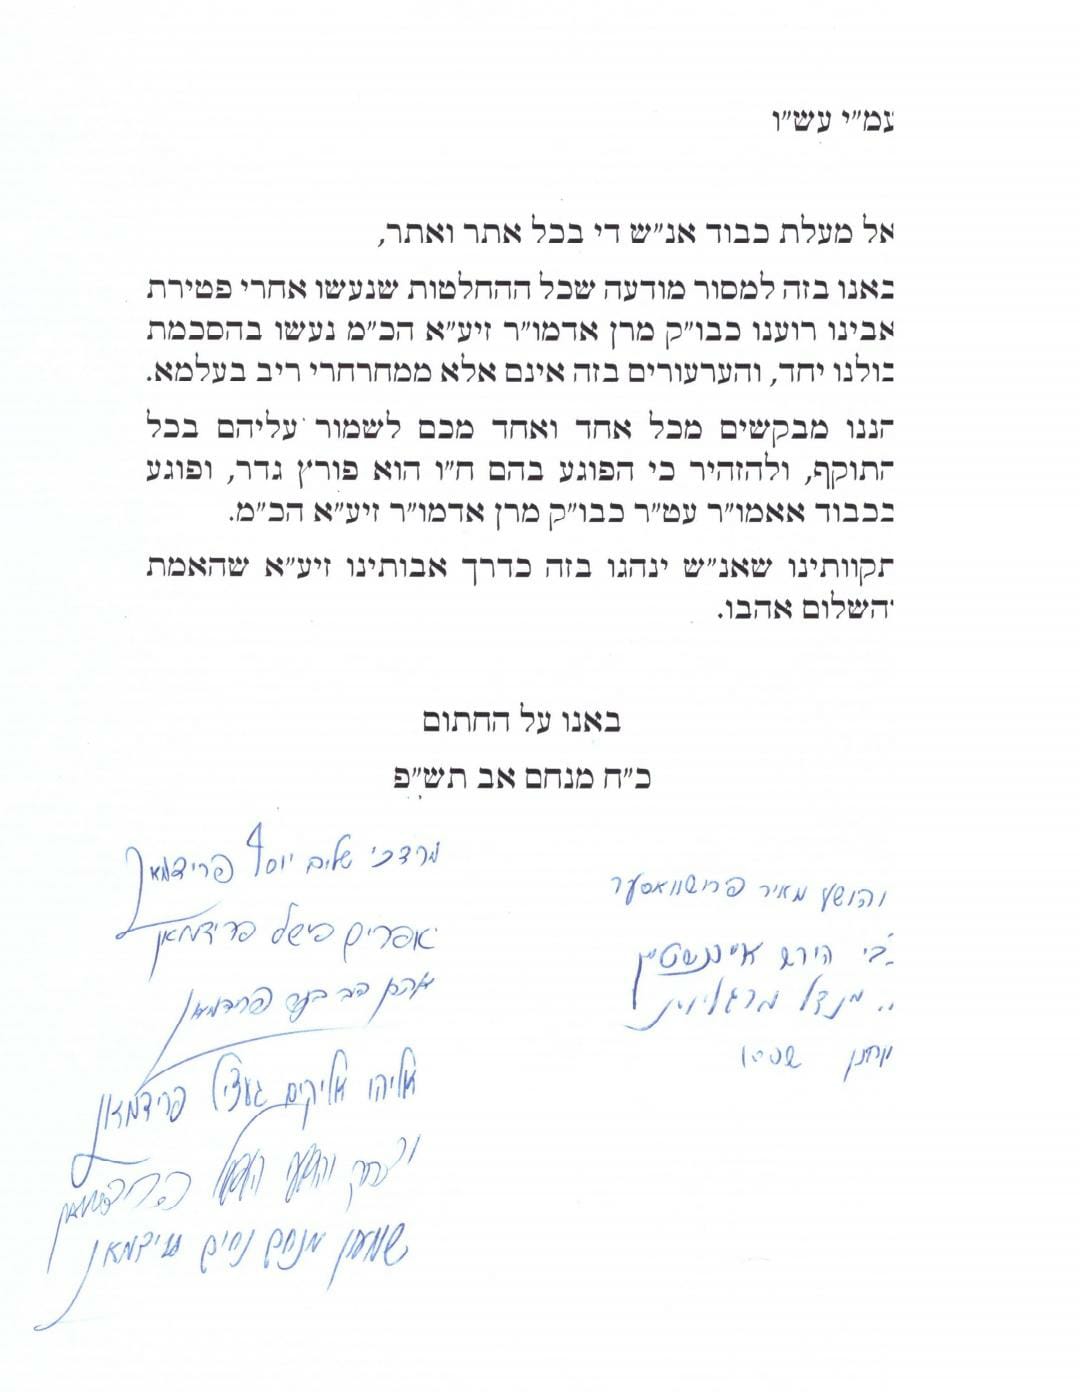 עמ״י עש״ו
אל מעלת כבוד אנ״ש די בכל אתר ואתר,
באנו בזה למסור מודעה שכל ההחלטות שנעשו אחרי פטירת
אבינו רוענו כבו״ק מרן אדמו״ר זיע״א הכ״מ נעשו בהסכמת
כולנו יחד, והערעורים בזה אינם אלא ממחרחרי ריב בעלמא.
הננו מבקשים מכל אחד ואחד מכם לשמור עליהם בכל
התוקף, ולהזהיר כי הפוגע בהם ח״ו הוא פורץ גדר, ופוגע
בכבוד אאמו״ר עט״ר כבו״ק מרן אדמו״ר זיע״א הכ״מ.
תקוותינו שאנ״ש ינהגו בזה כדרך אבותינו זיע״א שהאמת
והשלום אהבו.
באנו על החתום
כ״ח מנחם אב תש״פ
יהושע מאיר פרישוואסער
צבי הירש איינשטיין
מנדל מרגליות
יוחנן
מרדכי שלום יוסף פרידמאן
אפרים פישל פרידמאן
אהרן דב בער פרידמאן
אליהו אליקים געציל פרידמאן
יצחק יהושע העשל פרידמאן
שמעון מנחם נחום פרידמאן